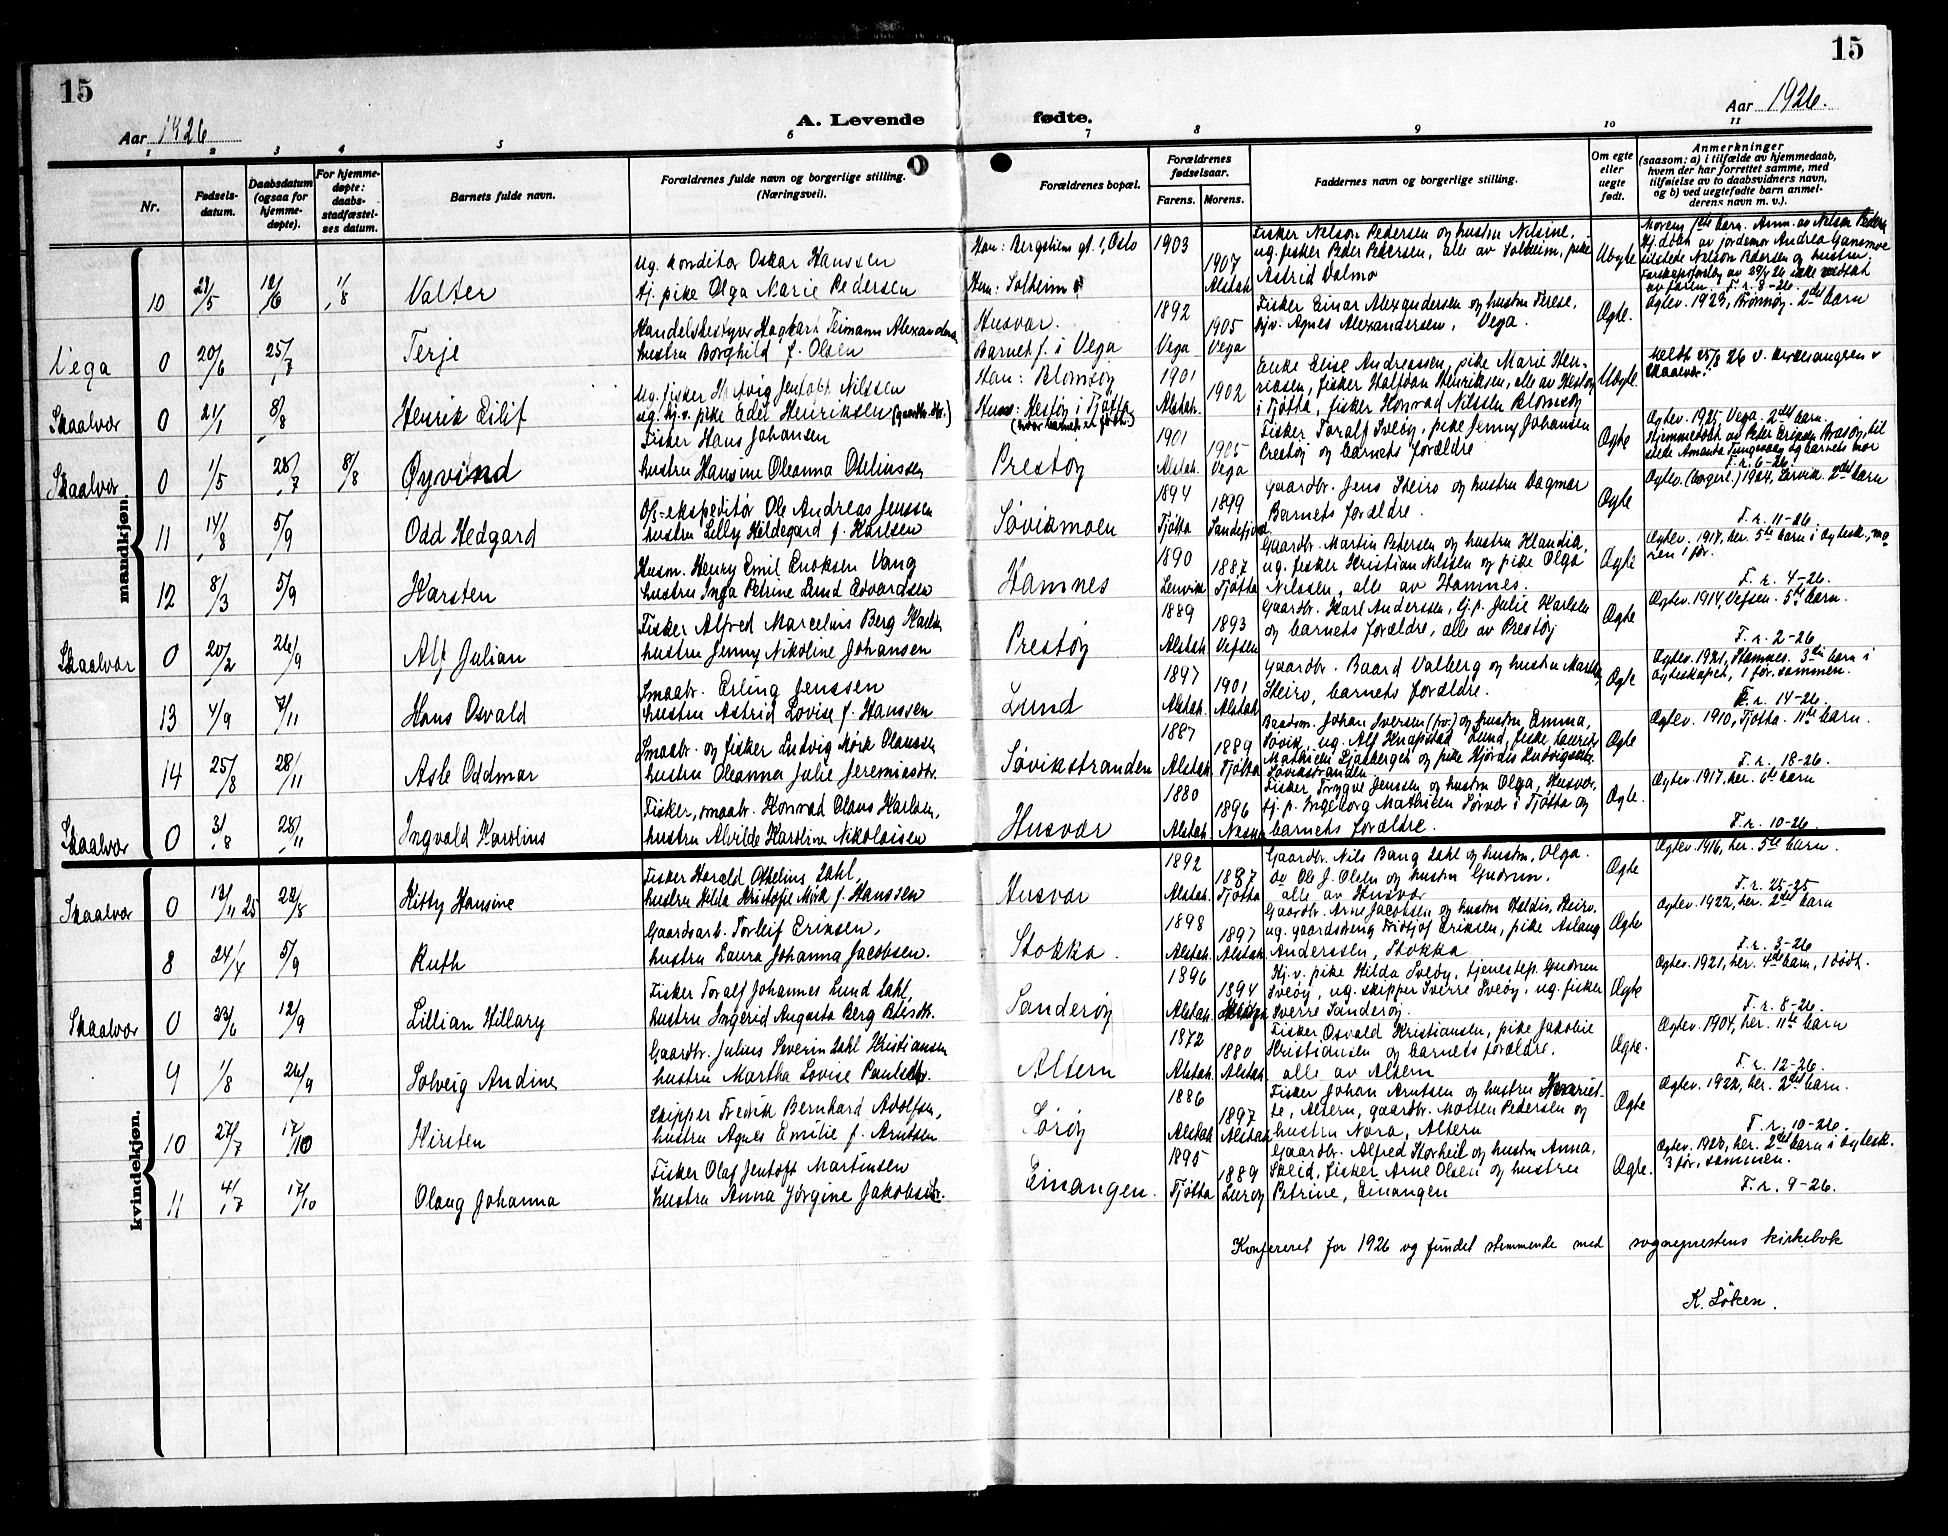 15
15
Aar 1926
A. Levende fødte.
Aar 1926.
1 2 3 4 5 6 7 8 9 10 11
Nr.
Fødsels-
datum.
Daabsdatum
(ogsaa for
hjemme-
døpte).
For hjemme-
døpte:
daabs-
stadfæstel-
ses datum.
Barnets fulde navn.
Forældrenes fulde navn og borgerlige stilling.
(Næringsvei).
Forældrenes bopæl.
Forældrenes
fødselsaar.
Farens. Morens.
Faddernes navn og borgerlige stilling.
Om egte
eller
uegte
født.
Anmerkninger
(saasom: a) i tilfælde av hjemmedaab,
hvem der har forrettet samme, med
tilføielse av to daabsvidners navn,
og b) ved uegtefødte barn anmel-
derens navn m. v.).
mandkjøn.
10 29/5 12/6 1/8 Valter
Ug. konditor Oskar Hanssen
tj. pike Olga Marie Pedersen
Han: Bergstiens gt. Oslo
Hun: Solheim
1903 1907 Alstah.
Fisker Nelson Pedersen og hustru Nilsine,
ug. fisker Peder Pedersen, alle av Solheim, pike
Astrid Dalmo
Uegte
Morens 1ste barn. Anm. av Nelson Peders
Hj.døbt av jordemor Andrea
tilstede Nelson Pedersen og hustru.
av faren. F. r. 8-26.
Vega 0 20/6 25/7 Terje
Handelsbestyrer Hagbart Teimann Alexanders
hustru Borghild f. Olsen
Husvær.
Barnet f. i Vega
1892 Vega 1905 Vega
Fisker Einar Alexandersen og hustru Terese,
hjv. Agnes Alexandersen, Vega.
Ægte.
Øgtev. 1923, Brønnøy. 2det barn
Skaalvær 0 21/1 8/8 Henrik Eilif
Ug. fisker Hartvig Jentoft Nilssen
ug. hj.v. pike Edel Henriksen (gaardbr. dtr.)
Han: Blomsøy
Hun: Hestøy i Tjøtta
(hvor barnet er født)
1901 Alstah. 1902
Enke Elise Andreassen, pike Marie Hen-
riksen, fisker Halfdan Henriksen, alle av Hestøy
i Tjøtta, fisker Konrad Nilssen Blomsøy
Uegte
Meldt 25/2 26 v. kirkesangeren i
Skaalvær.
Skaalvær 0 1/5 28/7 8/8 Øyvind
Fisker Hans Johansen
hustru Hansine Oleanna Otheliussen
Prestøy
1901 Alstah. 1905 Vega
Fisker Toralf Sveøy, pike Jenny Johansen
Prestøy og barnets forældre
Ægte
Øgtev. 1925, Vega. 2det barn.
Hjemmedøbt av Peter Eriksen Brasøy, til
stede Amanda Tungevaag og barnets mor
F. r. 6-26.
11 14/8 5/9 Odd Hedgard
Ds-ekspeditør Ole Andreas Jenssen
hustru Lilly Hildegard f. Karlsen
Søvikmoen
1894 Tjøtta 1899 Sandefjord
Gaardbr. Jens Steiro og hustru Dagmar
Barnets forældre.
Ægte
Øgtev. (borgerl.) 1924, Larvik. 2det barn
F. r. 11-26.
12 8/3 5/9 Karsten
Husm. Henry Emil Enoksen Vang
hustru Inga Petrine Lund Edvardsen
Hamnes
1890 Lenvik 1887 Tjøtta
Gaardbr. Martin Petersen og hustru Klaudia,
ug. fisker Kristian Nilssen og pike Olga
Nilssen, alle av Hamnes.
Ægte
Øgtev. 1917, her. 5te barn i øgtesk., mo
ren 1 før.
F. r. 4-26.
Skaalvær 0 20/2 26/9 Alf Julian
Fisker Alfred Marcelius Berg Karlsen
hustru Jenny Nikoline Johansen
Prestøy
1889 Alstah. 1893 Vefsen
Gaardbr. Karl Anderssen, tj.p. Julie Karlsen
og barnets forældre, alle av Prestøy
Ægte
Øgtev. 1914, Vefsen. 5te barn.
F. r. 2-26.
13 4/9 7/11 Hans Osvald
Smaabr. Erling Jenssen
hustru Astrid Lovise f. Hanssen
Lund
1897 Alstah. 1901 Alstah.
Gaardbr. Baard Valberg og hustru Martha,
Steiro, barnets forældre.
Ægte
Øgtev. 1921, Stamnes. 3die barn i
øgteskapet, 1 før. sammen.
F. r. 14-26.
14 25/8 28/11 Asle Oddmar
Smaabr. og fisker Ludvig Mørk Olaussen
hustru Oleanna Julie Jeremiasdtr.
Søvikstranden
1887 Alstah. 1889 Tjøtta
Baadsm. Johan Iversen og hustru Emma,
Søvik, ug. Alf Knapstad Lund, fiske Laurits
Mathisen Ljosbergen og pike Hjørdis Ludvigsen
Søvikstranden
Ægte
Øgtev. 1910, Tjøtta. 11te barn.
F. r. 18-26.
Skaalvær 0 3/8 28/11 Ingvald Karolius
Fisker, smaabr. Konrad Olaus Karlsen,
hustru Alvilde Karoline Nikolaisen
Husvær
1880 Alstah. 1896 Nesna
Fisker Trygve Jenssen og hustru Olga, Husvær,
tj. p. Ingeborg Mathisen Sørvær i Tjøtta og
barnets forældre.
Ægte.
Øgtev. 1917, her. 6te barn
F. r. 10-26.
kvindekjøn.
Skaalvær 0 13/11 25 22/8 Kitty Hansine
Fisker Harald Othelius Dahl,
hustru Hilda Kristofie Mørk f. Hanssen
Husvær
1892 Alstah. 1887 Tjøtta
Gaardbr. Nils Bang Dahl og hustru, Olga.
do Ole J. Olsen og hustru Gudrun.
alle av Husvær
Ægte
Øgtev. 1916, her. 5te barn.
F. r. 25-25
8 24/4 5/9 Ruth
Gaardsarb. Torleif Eriksen,
hustru Laura Johanna Jacobsen.
Stokka.
1898 Alstah. 1897 Alstah.
Gaardbr. Arne Jacobsen og hustru Haldis, Steiro.
ug. gaardsdreng Fridtjof Eriksen, pike Aslaug
Anderssen, Stokka
Ægte
Øgtev. 1922, her. 2det barn
F. r. 3-26
Skaalvær 0 23/6 12/9 Lillian Hillary
Fisker Toralf Johannes Lund Dahl,
hustru Ingerid Augusta Berg
Sanderøy
1896 Alstah. 1894
Hj.v. pike Hilda Sveøy, tjenestep. Gudrun
Sveøy, ug. skipper Sverre Sveøy, ug. fisker
Sverre Sanderøy.
Ægte
Øgtev. 1921, her. 4de barn, 1 dødt.
F. r. 8-26.
9 1/8 26/9 Solveig Andine
Gaardbr. Julius Severin Dahl Kristiansen
hustru Martha Lovise Paulsdtr.
Altern
1872 Alstah. 1880 Alstah.
Fisker Osvald Kristiansen, pike Jakobie
Kristiansen og barnets forældre.
alle av Altern
Ægte.
Øgtev. 1904, her. 11te barn
F. r. 12-26.
10 27/7 17/10 Kirsten
Skipper Fredrik Bernhard Adolfsen,
hustru Agnes Emilie f. Arntsen
Sørøy
1886 Alstah. 1897 Alstah.
Fisker Johan Arntsen og hustru Henriet-
te, Altern, gaardbr. Morten Pedersen og
hustru Nora, Altern
Ægte
Øgtev. 1922, her. 2det barn.
F. r. 10-26.
11 4/7 17/10 Olaug Johanna
Fisker Olaf Jentoft Martinsen
hustru Anna Jørgine Jakobsdtr.
Einangen.
1895 Tjøtta 1889 Lurøy
Gaardbr. Alfred Storheil og hustru Anna,
Skeid, fisker Arne Olsen og hustru
Petrine, Einangen
Ægte.
Øgtev. 1920, her. 2det barn i øgtesk.
3 før, sammen.
F. r. 9-26.
Konfereret for 1926 og fundet stemmende med sogneprestens kirkebok
K. Löken.